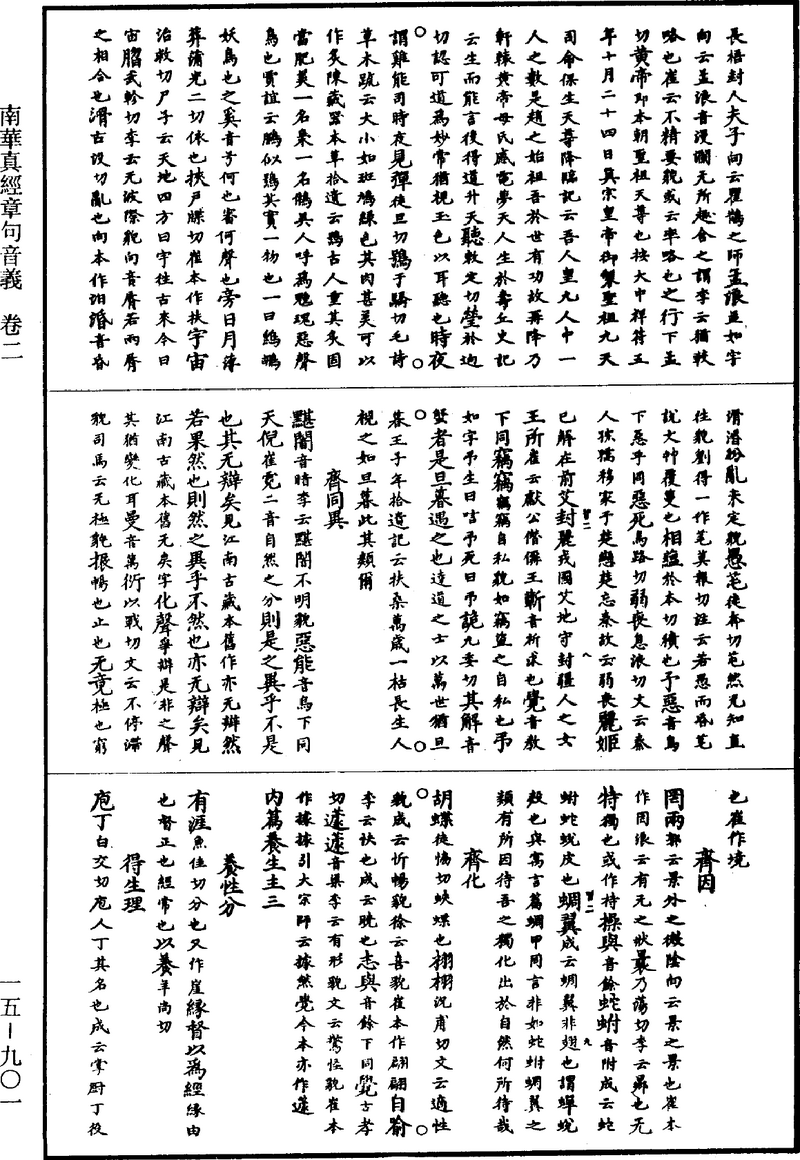 南華真經章句音義　卷二
一五－九〇一
長梧封人夫子向云瞿鵲之師孟浪並如字
向云孟浪音漫瀾无所趣舍之謂李云猶較
略也崔云不精要貌或云率略也之行下孟
切黃帝即本朝聖祖天尊也按大中祥符五
年十月二十四日真宗皇帝御製聖祖九天
司命保生天尊降臨記云吾人皇九人中一
人之數是趙之始祖吾於世有功故再降乃
軒轅黃帝母氏感電夢天人生於壽丘史記
云生而能言後得道升天聽熒定切瑩於迥
切認可道爲妙常猶視玉色以耳聽也時夜
謂雞能司時夜見彈徒旦切鴞于驕切毛詩
草木疏云大小如斑鳩綠色其肉甚美可以
作炙陳藏器本草拾遺云鴞古人重其炙固
當肥美一名梟一名鵂吳人呼爲魑魂惡聲
鳥也賈誼云鵩似鴞其實一物也一曰鵋鶀
妖鳥也之奚音兮何也害何聲也旁日月薄
葬蒲光二切依也挾戶牒切崔本作扶宇宙
治救切尸子云天地四方曰宇往古來今曰
宙脗武軫切李云无波際貌向音脣若兩脣
之相合也滑古沒切亂也向本作汩涽音昏
滑涽紛亂未定貌愚芚徒奔切芚然无知直
往貌劉得一作芚莫報切注云若愚而昏芚
說文艸覆蔓也相蘊於本切積也予惡音烏
下惡乎同惡死烏路切弱喪息浪切文云秦
人孩孺移家于楚戀楚忘秦故云弱喪麗姬
已解在前艾封麗戎國艾地守封疆人之女
王所崔云獻公僭僞王蘄音祈求也覺音教
下同竊竊竊竊自私貌如竊盜之自私也弔
如字弔生曰唁弔死曰弔詭九委切其解音
蟹者是旦暮遇之也達道之士以萬世猶旦
暮王子年拾遺記云扶桑萬歲一枯長生人
視之如旦暮此其類爾
齊同異
黮闇音時李云黮闇不明貌惡能音烏下同
天倪崔霓二音自然之分則是之異乎不是
也其无辯矣見江南古藏本舊作亦无辯然
若果然也則然之異乎不然也亦无辯矣見
江南古藏本舊无矣字化聲爭辯是非之聲
其猶變化耳曼音萬衍以戰切文云不停滯
貌司馬云无極能振暢也止也无竟極也窮
也崔作境
齊因
罔兩郭云景外之微陰向云景之景也崔本
作罔浪云有无之狀曩乃蕩切李云曏也无
特獨也或作持操與音餘蛇蚹音附成云蛇
蚹蛇蛻皮也蜩翼成云蜩翼非翅也謂蟬蛻
殼也與寓言篇蜩甲同言非如蛇蚹蜩翼之
類有所因待吾之獨化出於自然何所待哉
齊化
胡蝶徒愶切蛺蝶也栩栩況甫切文云適性
貌成云忻暢貌徐云喜貌崔本作翩翩自喻
李云快也成云曉也志與音餘下同覺古孝
切蘧蘧音渠李云有形貌文云驚怪貌崔本
作據據引大宗師云據然覺今本亦作蘧
內篇養生主三
養性分
有涯魚佳切分也又作崖緣督以爲經緣由
也督正也經常也以養羊尚切
得生理
庖丁白交切庖人丁其名也成云掌厨丁役